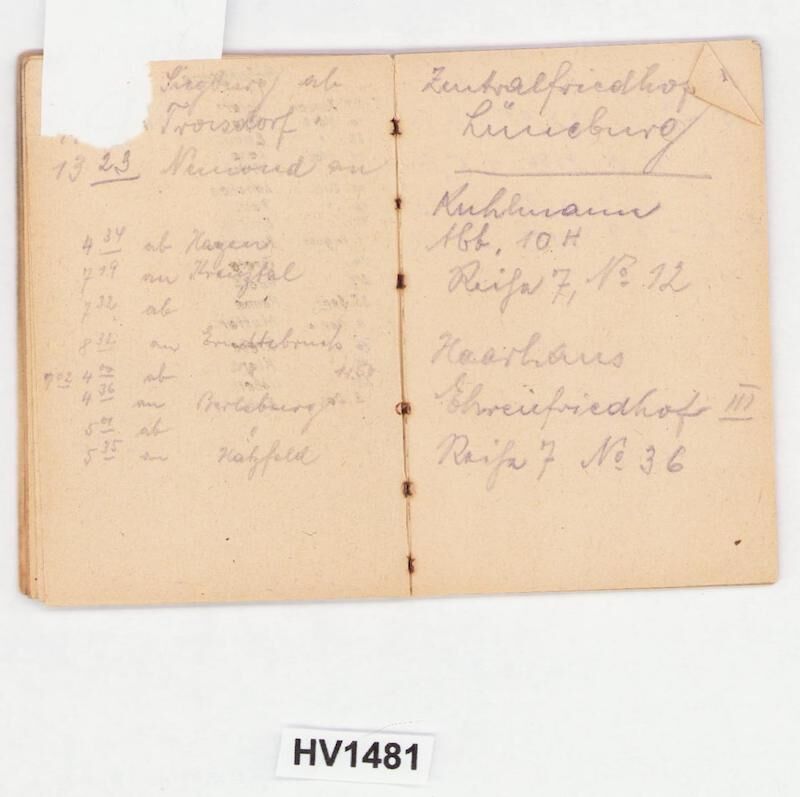 Siegburg ab
Troisdorf
13 23 Neuwied an
4 34 ab Hagen
7 19 an Kreuztal
7 32 ab "
8 32 an Erndtebrück
7 02 4 00 ab
4 36 an Berleburg
5 01 ab "
5 35 an Hatzfeld
Zentralfriedhof
Lüneburg
Kuhlmann
Abt. 10 H
Reihe 7, No 12
Haarhaus
Ehrenfriedhof III
Reihe 7 No 36
HV1481